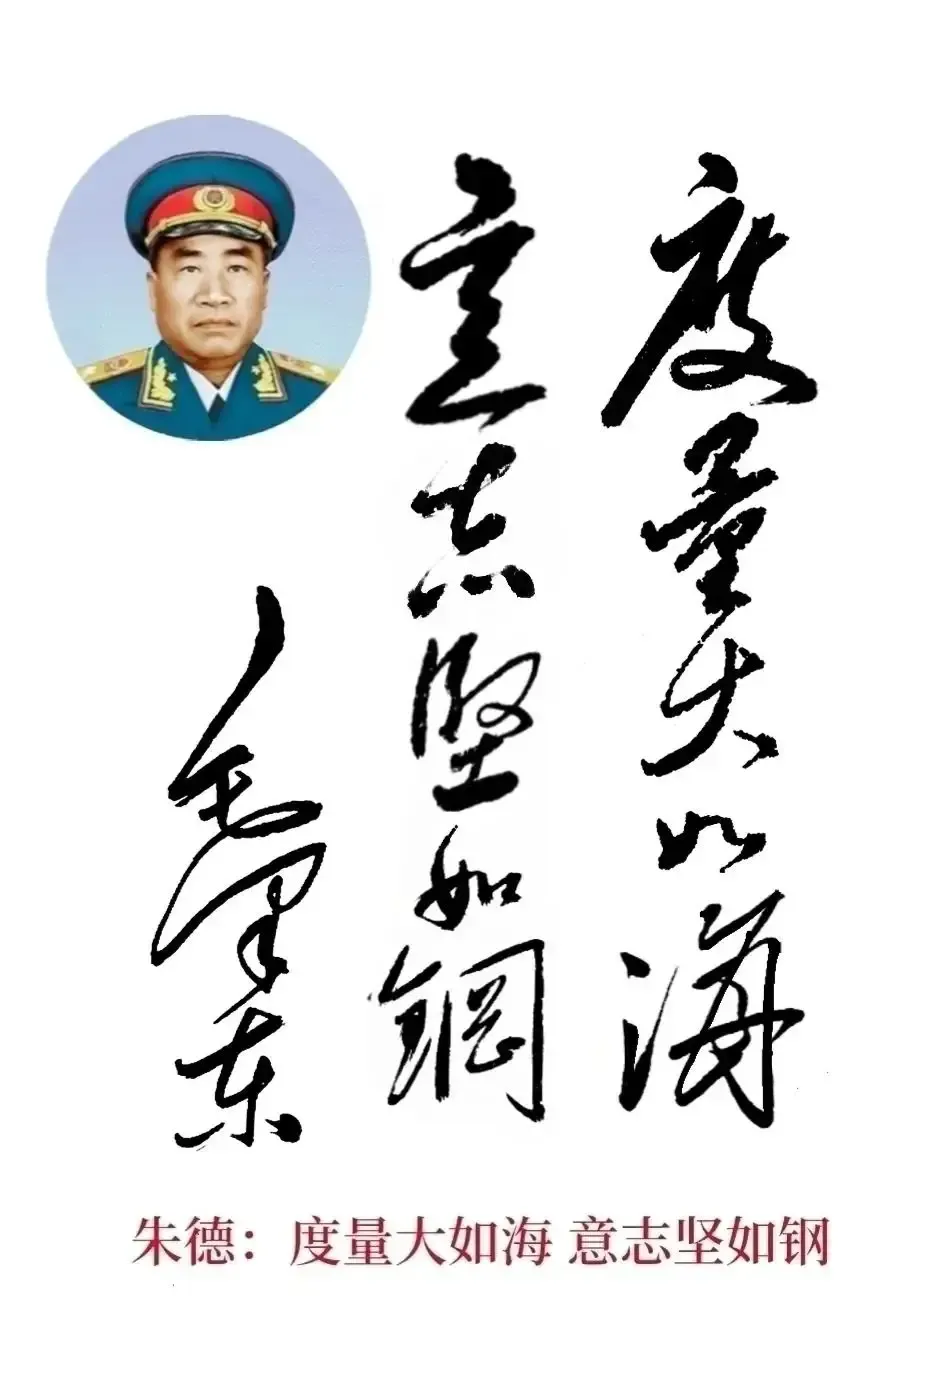 度量大如海
意志堅如鋼
毛澤东
朱德：度量大如海 意志坚如钢